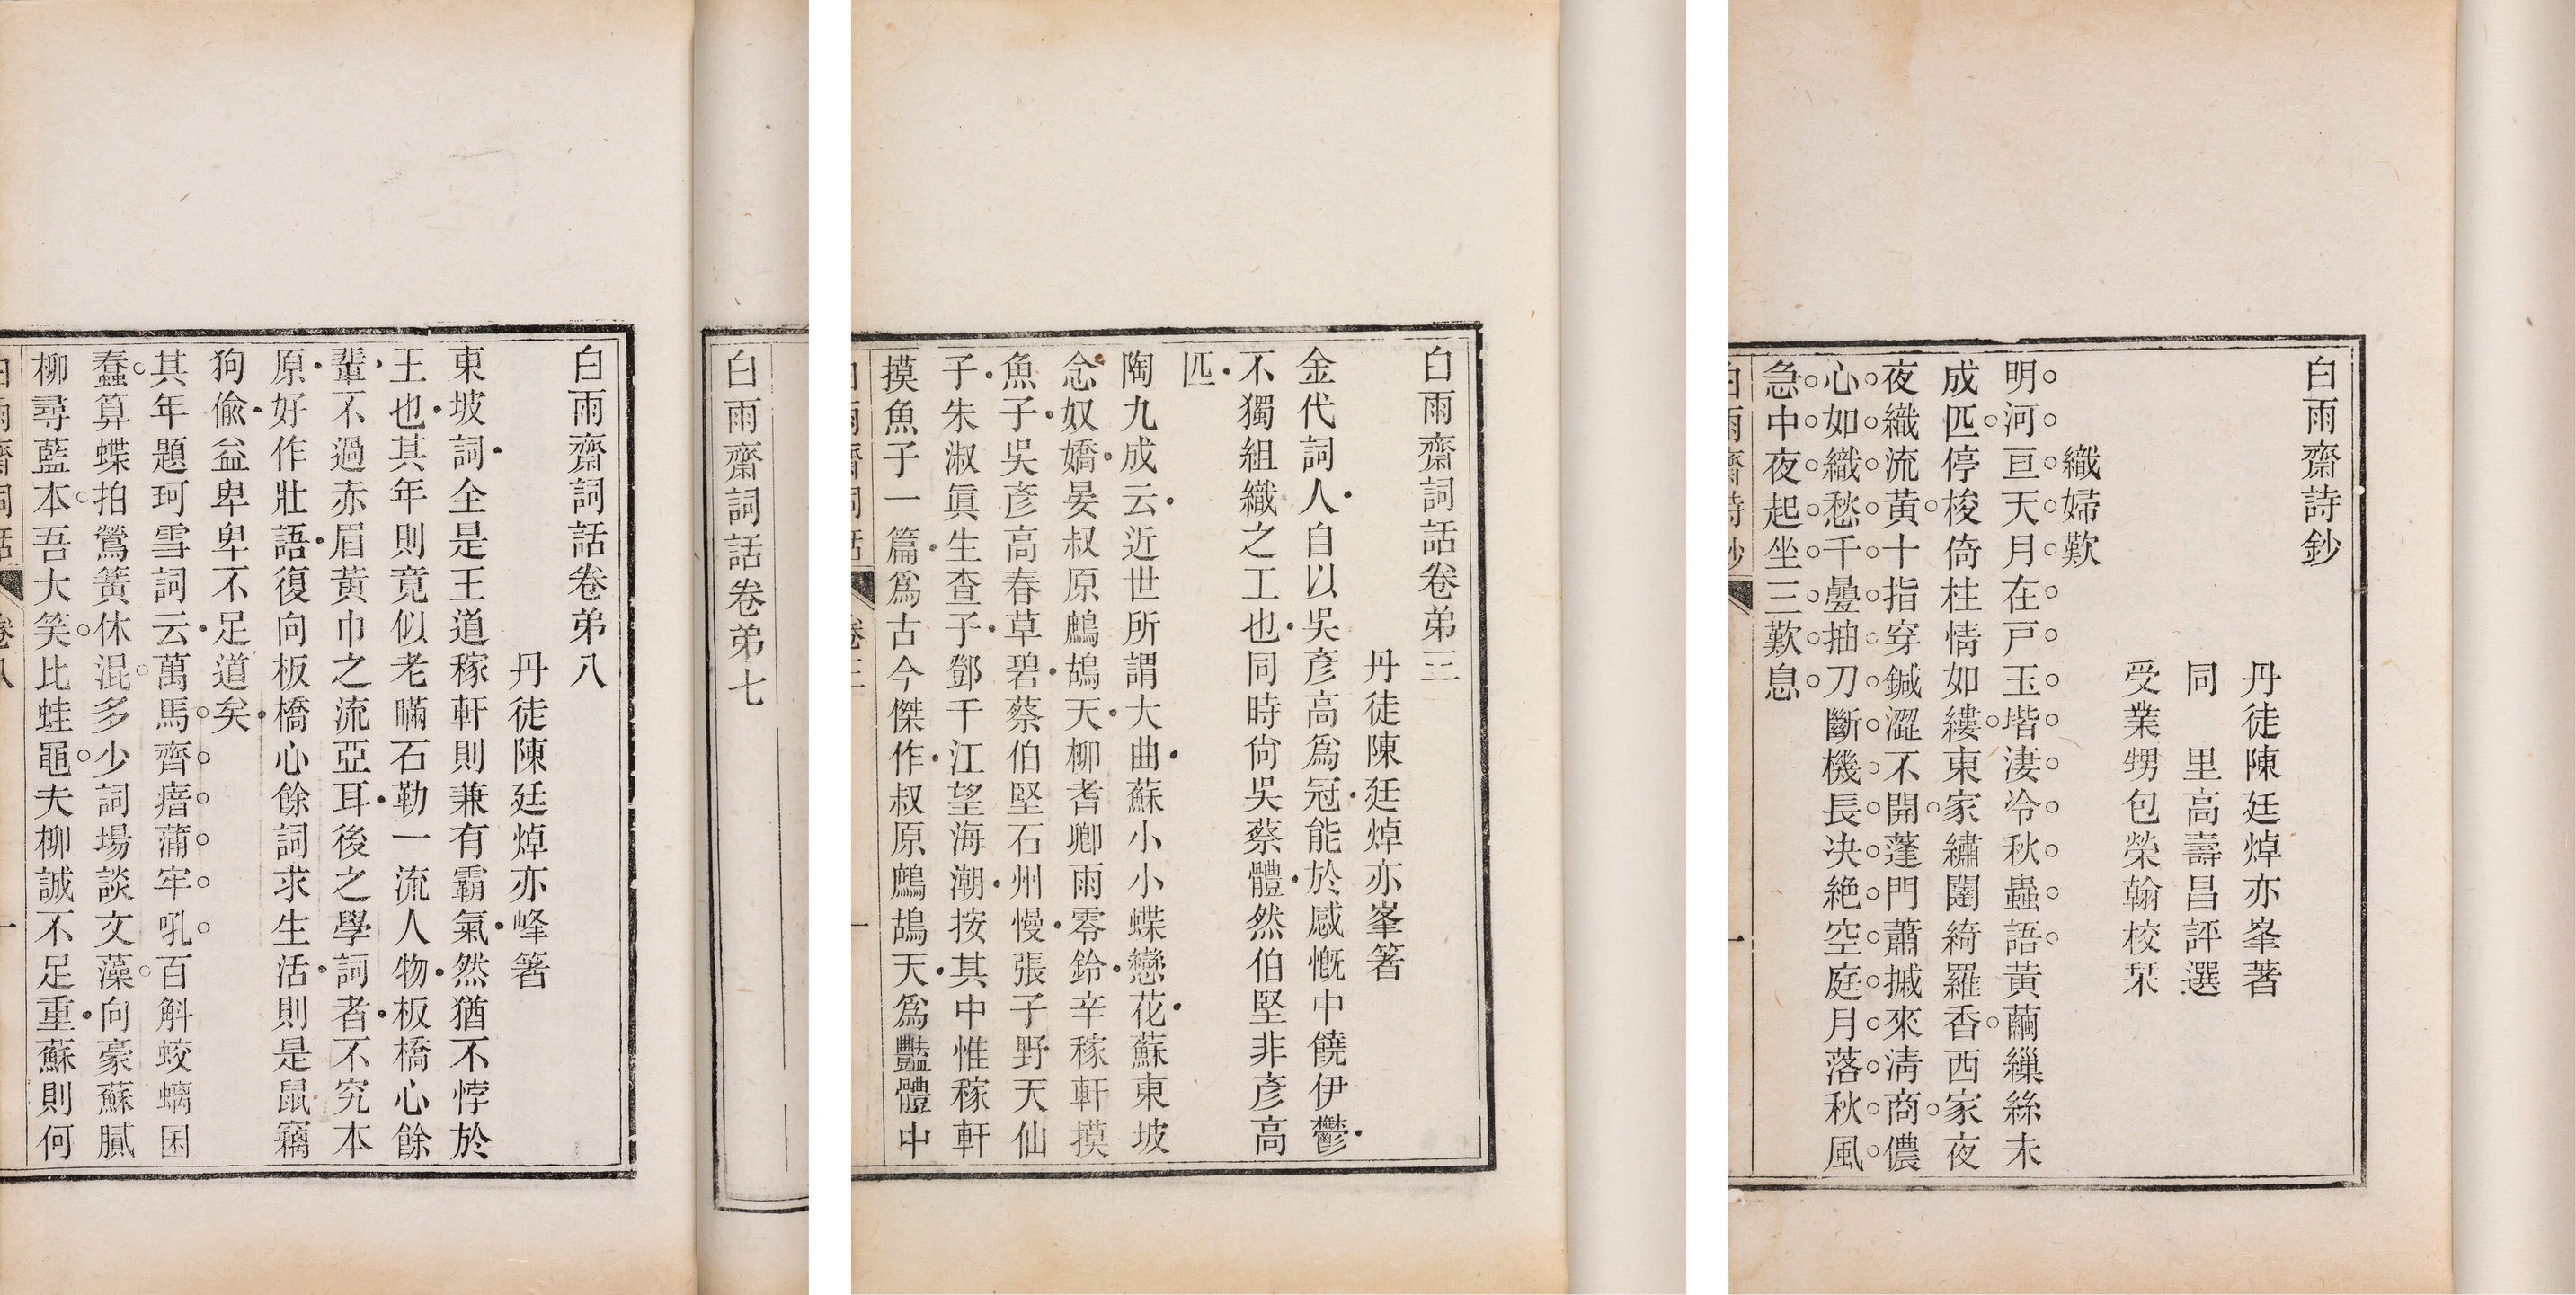 白雨齋詩鈔
丹徒陳廷焯亦峯著
同里高壽昌評選
受業甥包榮翰校栞
織婦歎
明河亘天月在戸玉堦淒冷秋蟲語黃繭繅絲未
成匹停梭倚柱情如縷東家繡闥綺羅香西家夜
夜織流黃十指穿鍼澀不開蓬門蕭摵來淸商儂
心如織愁千疊抽刀斷機長決絶空庭月落秋風
急中夜起坐三歎息
白雨齋詩鈔
一
白雨齋詞話卷弟三
丹徒陳廷焯亦峯箸
金代詞人自以吳彥高爲冠能於感慨中饒伊鬱
不獨組織之工也同時尙吳蔡體然伯堅非彥高
匹
陶九成云近世所謂大曲蘇小小蝶戀花蘇東坡
念奴嬌晏叔原鷓鴣天柳耆卿雨零鈴辛稼軒摸
魚子吳彥高春草碧蔡伯堅石州慢張子野天仙
子朱淑眞生查子鄧千江望海潮按其中惟稼軒
摸魚子一篇爲古今傑作叔原鷓鴣天爲豔體中
白雨齋詞話
卷三
一
白雨齋詞話卷弟七
白雨齋詞話卷弟八
丹徒陳廷焯亦峰箸
東坡詞全是王道稼軒則兼有霸氣然猶不悖於
王也其年則竟似老瞞石勒一流人物板橋心餘
輩不過赤眉黃巾之流亞耳後之學詞者不究本
原好作壯語復向板橋心餘詞求生活則是鼠竊
狗偸益卑卑不足道矣
其年題珂雪詞云萬馬齊瘖蒲牢吼百斛蛟螭囷
蠢算蝶拍鶯簧休混多少詞場談文藻向豪蘇膩
柳尋藍本吾大笑比蛙黽夫柳誠不足重蘇則何
白雨齋詞話
卷八
一